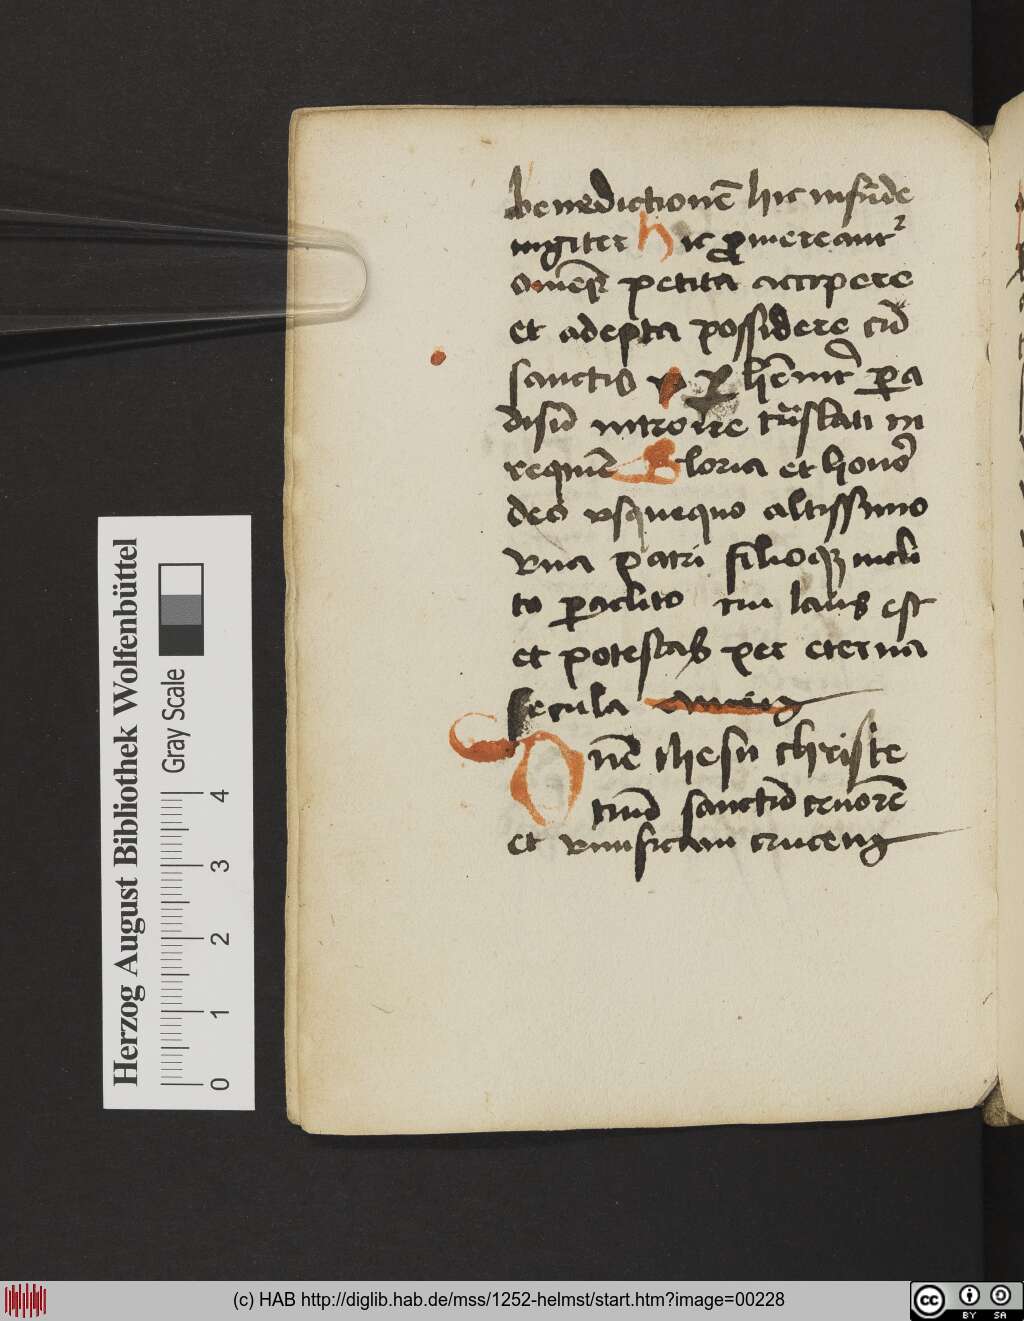 benedictionē hic infūde
iugiter Hic ꝓmereant᷑
om̄es petita accipere
et adepta possidere cū
sanctis ꝑhēnit᷑ ꝑa
disū introire trāslati in
requiē Gloria et honor
deo vsquequo altissimo
vna patri filioqꝫ incli
to ꝑaclito cui laus est
et potestas per eterna
secula amen
Dn̄e ihesu christe
tuā sanctā
et viuificam crucem
Herzog August Bibliothek Wolfenbüttel
Gray Scale
0 1 2 3 4
(c) HAB http://diglib.hab.de/mss/1252-helmst/start.htm?image=00228
cc BY SA